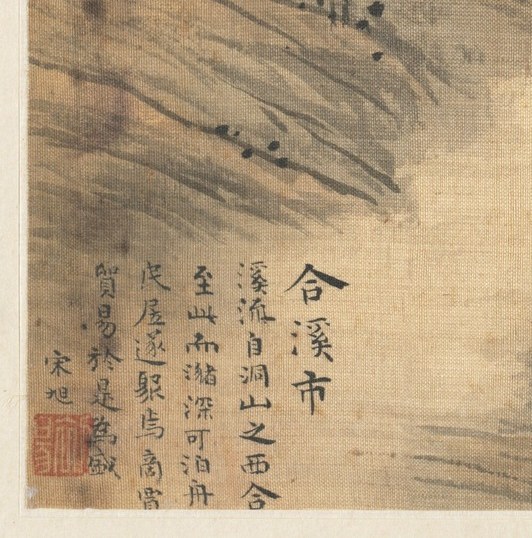 合溪市
溪流自洞山之西合
至此而潴深可泊舟
民居遂聚焉商賈
貿易於是為盛
宋旭